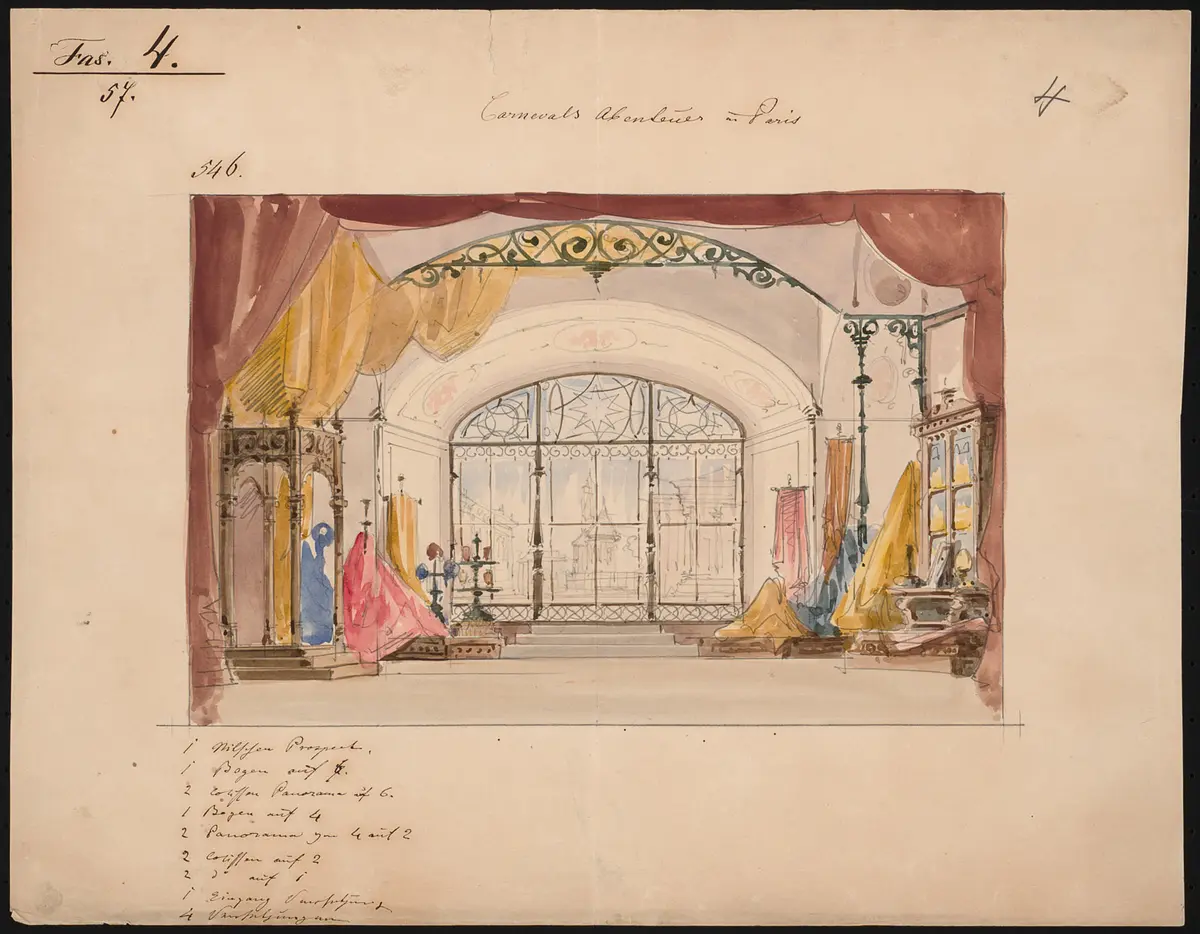 Fas. 4.
57.
Carnevals Abenteuer in Paris
4
546.
1 Prospect.
1 Bogen auf 6.
2 Coulissen Panorama auf 6.
1 Bogen auf 4
2 Panorama von 4 auf 2
2 Coulissen auf 2
2 dº auf 1
1 Eingang Versetzung
4 Versetzungen